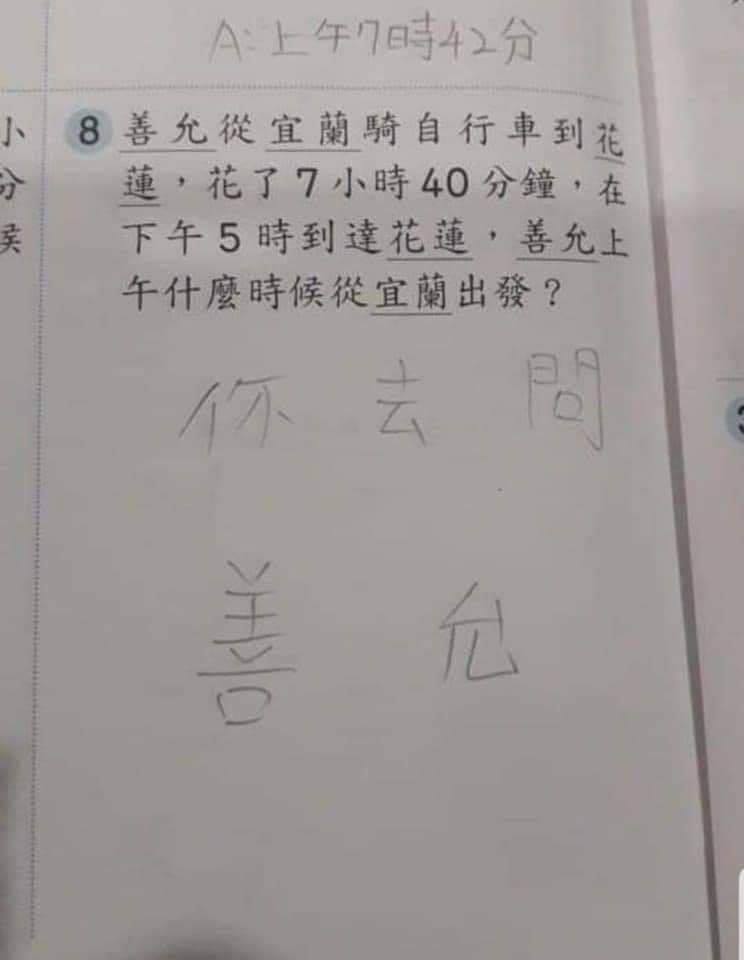 A:上午7時42分
小
分
侯
8 善允從宜蘭騎自行車到花
蓮，花了7小時40分鐘，在
下午5時到達花蓮，善允上
午什麼時候從宜蘭出發？
你去問
善允